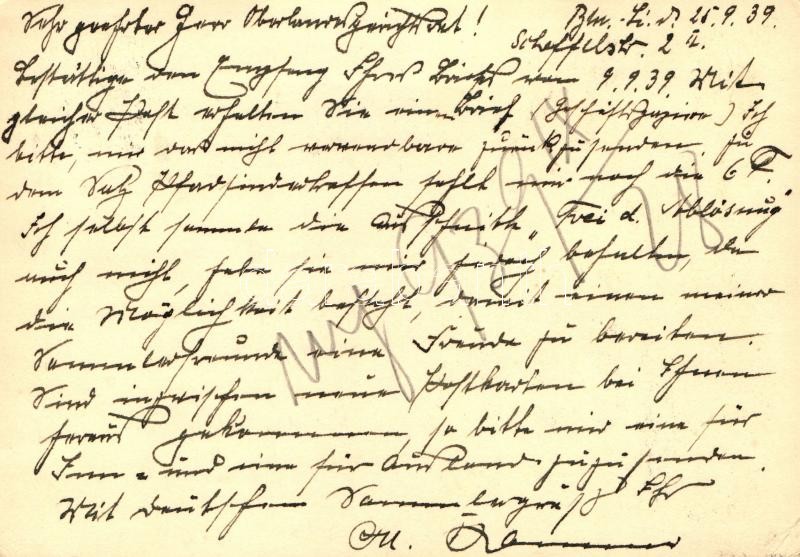 Sehr geehrter Herr Oberlandesgerichtsrat! Bln.-Li. d. 25.9.39.
Scheffelstr. 2 II.
Bestättige den Empfang Ihres Briefes vom 9.9.39. Mit
gleicher Post erhalten Sie einen Brief (Geschäftspapiere) Ich
bitte, mir das nicht verwendbare zurückzusenden. Zu
dem Satz Pfadfindertreffen fehlt mir noch die 6 F.
Ich selbst sammle die Ausschnitte „Frei d. Ablösung"
auch nicht, habe sie mir jedoch behalten, da
die Möglichkeit besteht, damit einem meiner
Sammlerfreunde eine Freude zu bereiten.
Sind inzwischen neue Postkarten bei Ihnen
heraus gekommen, so bitte mir eine für
Inn- und eine für Ausland zuzusenden.
Mit deutschem Sammlergruß Ihr